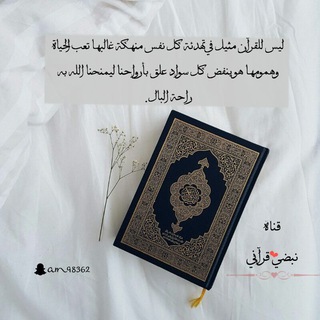 ليس للقرآن مثيل في تهدئة كل نفس منهكة غالبها تعب الحياة
وهمومها هو ينفض كل سواد علق بأرواحنا ليمنحنا الله به
راحة البال.
قناة
نبضي قرآني
am_98362